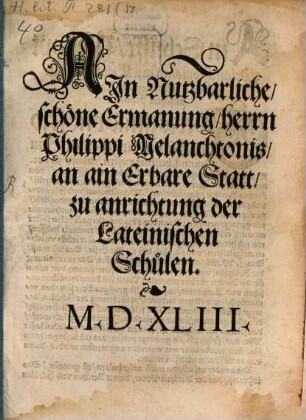 H. lit. P. 281 (17
4°
AIn Nutzbarliche/
schöne Ermanung/herrn
Philippi Melanchtonis/
an ain Erbare Statt/
zu anrichtung der
Lateinischen
Schůlen.
M. D. XLIII.